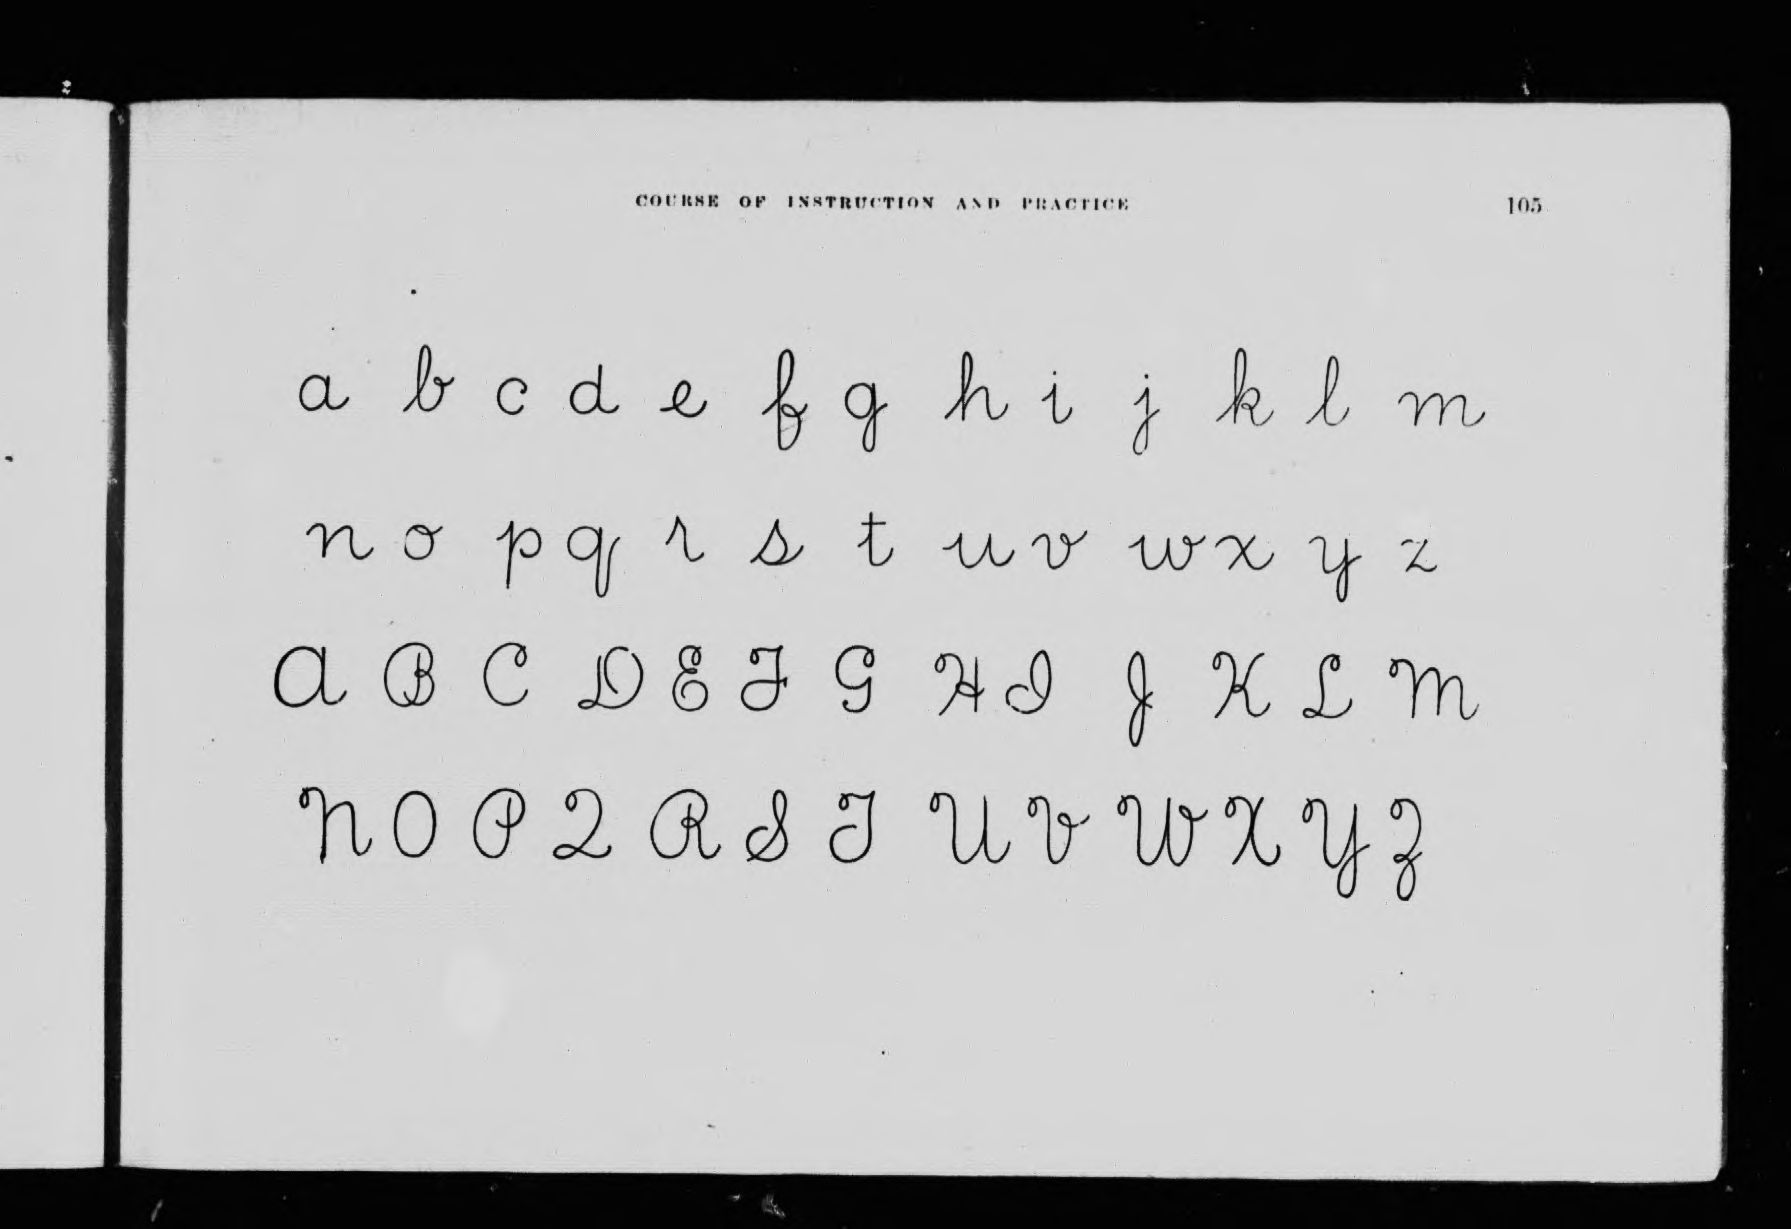 COURSE OF INSTRUCTION AND PRACTICE 105
a b c d e f g h i j k l m
n o p q r s t u v w x y z
A B C D E F G H I J K L M
N O P Q R S T U V W X Y Z